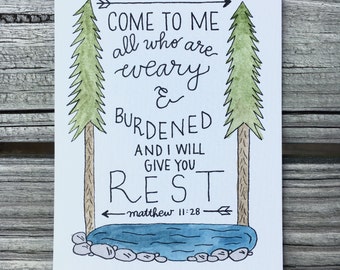 COME TO ME
all who are
weary
&
BURDENED
AND I WILL
GIVE YOU
REST
matthew 11:28